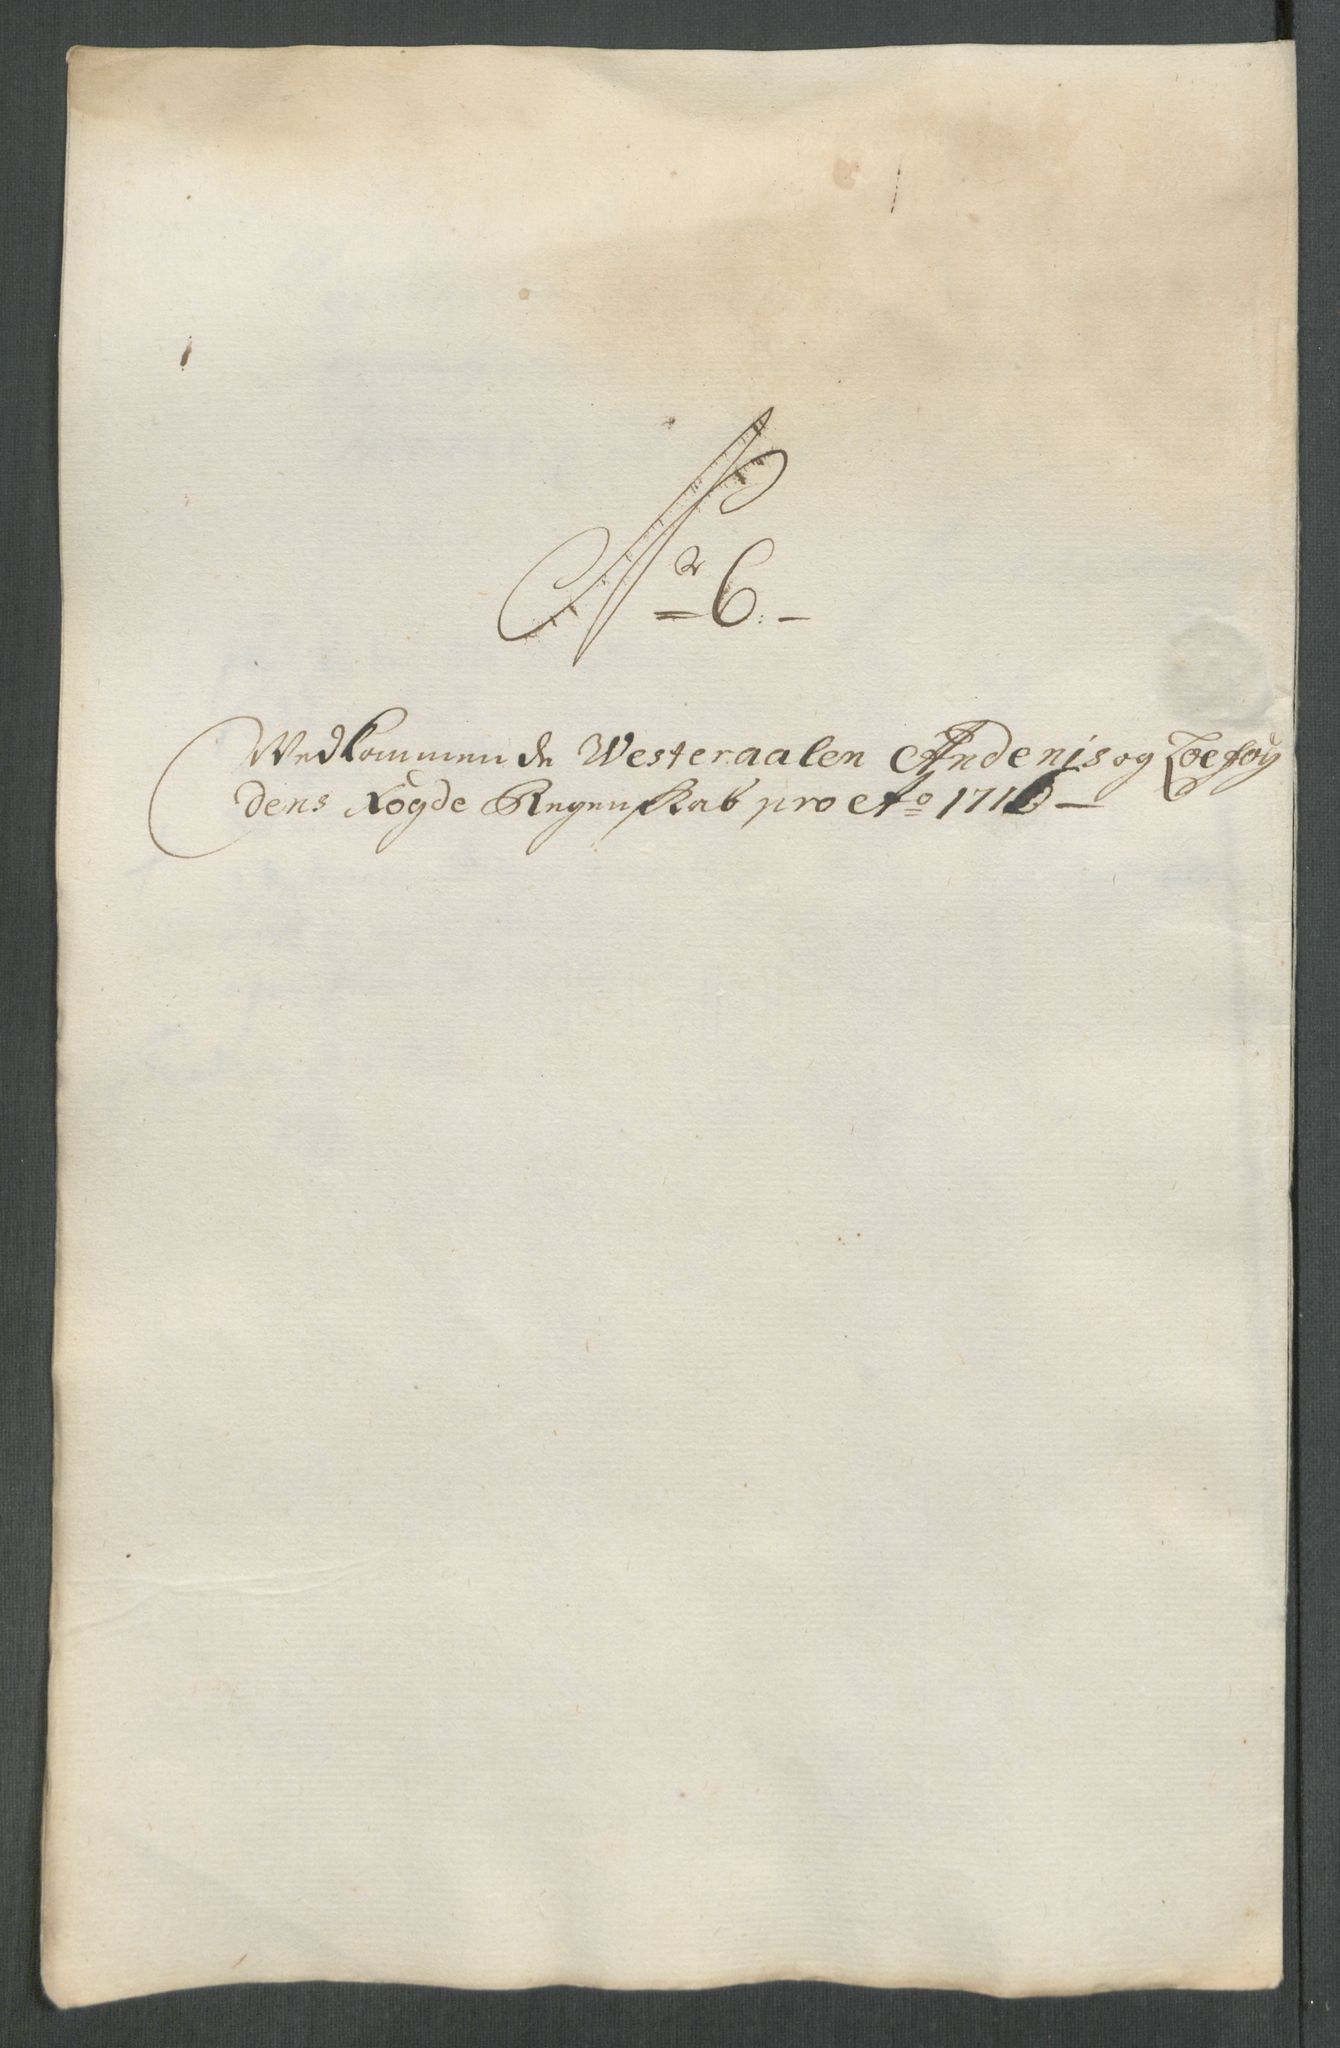 No 6:-
Vedkommende Westeraalen Andenis og Loefou
dens Fögde Regenskab pro Ao 1716 —